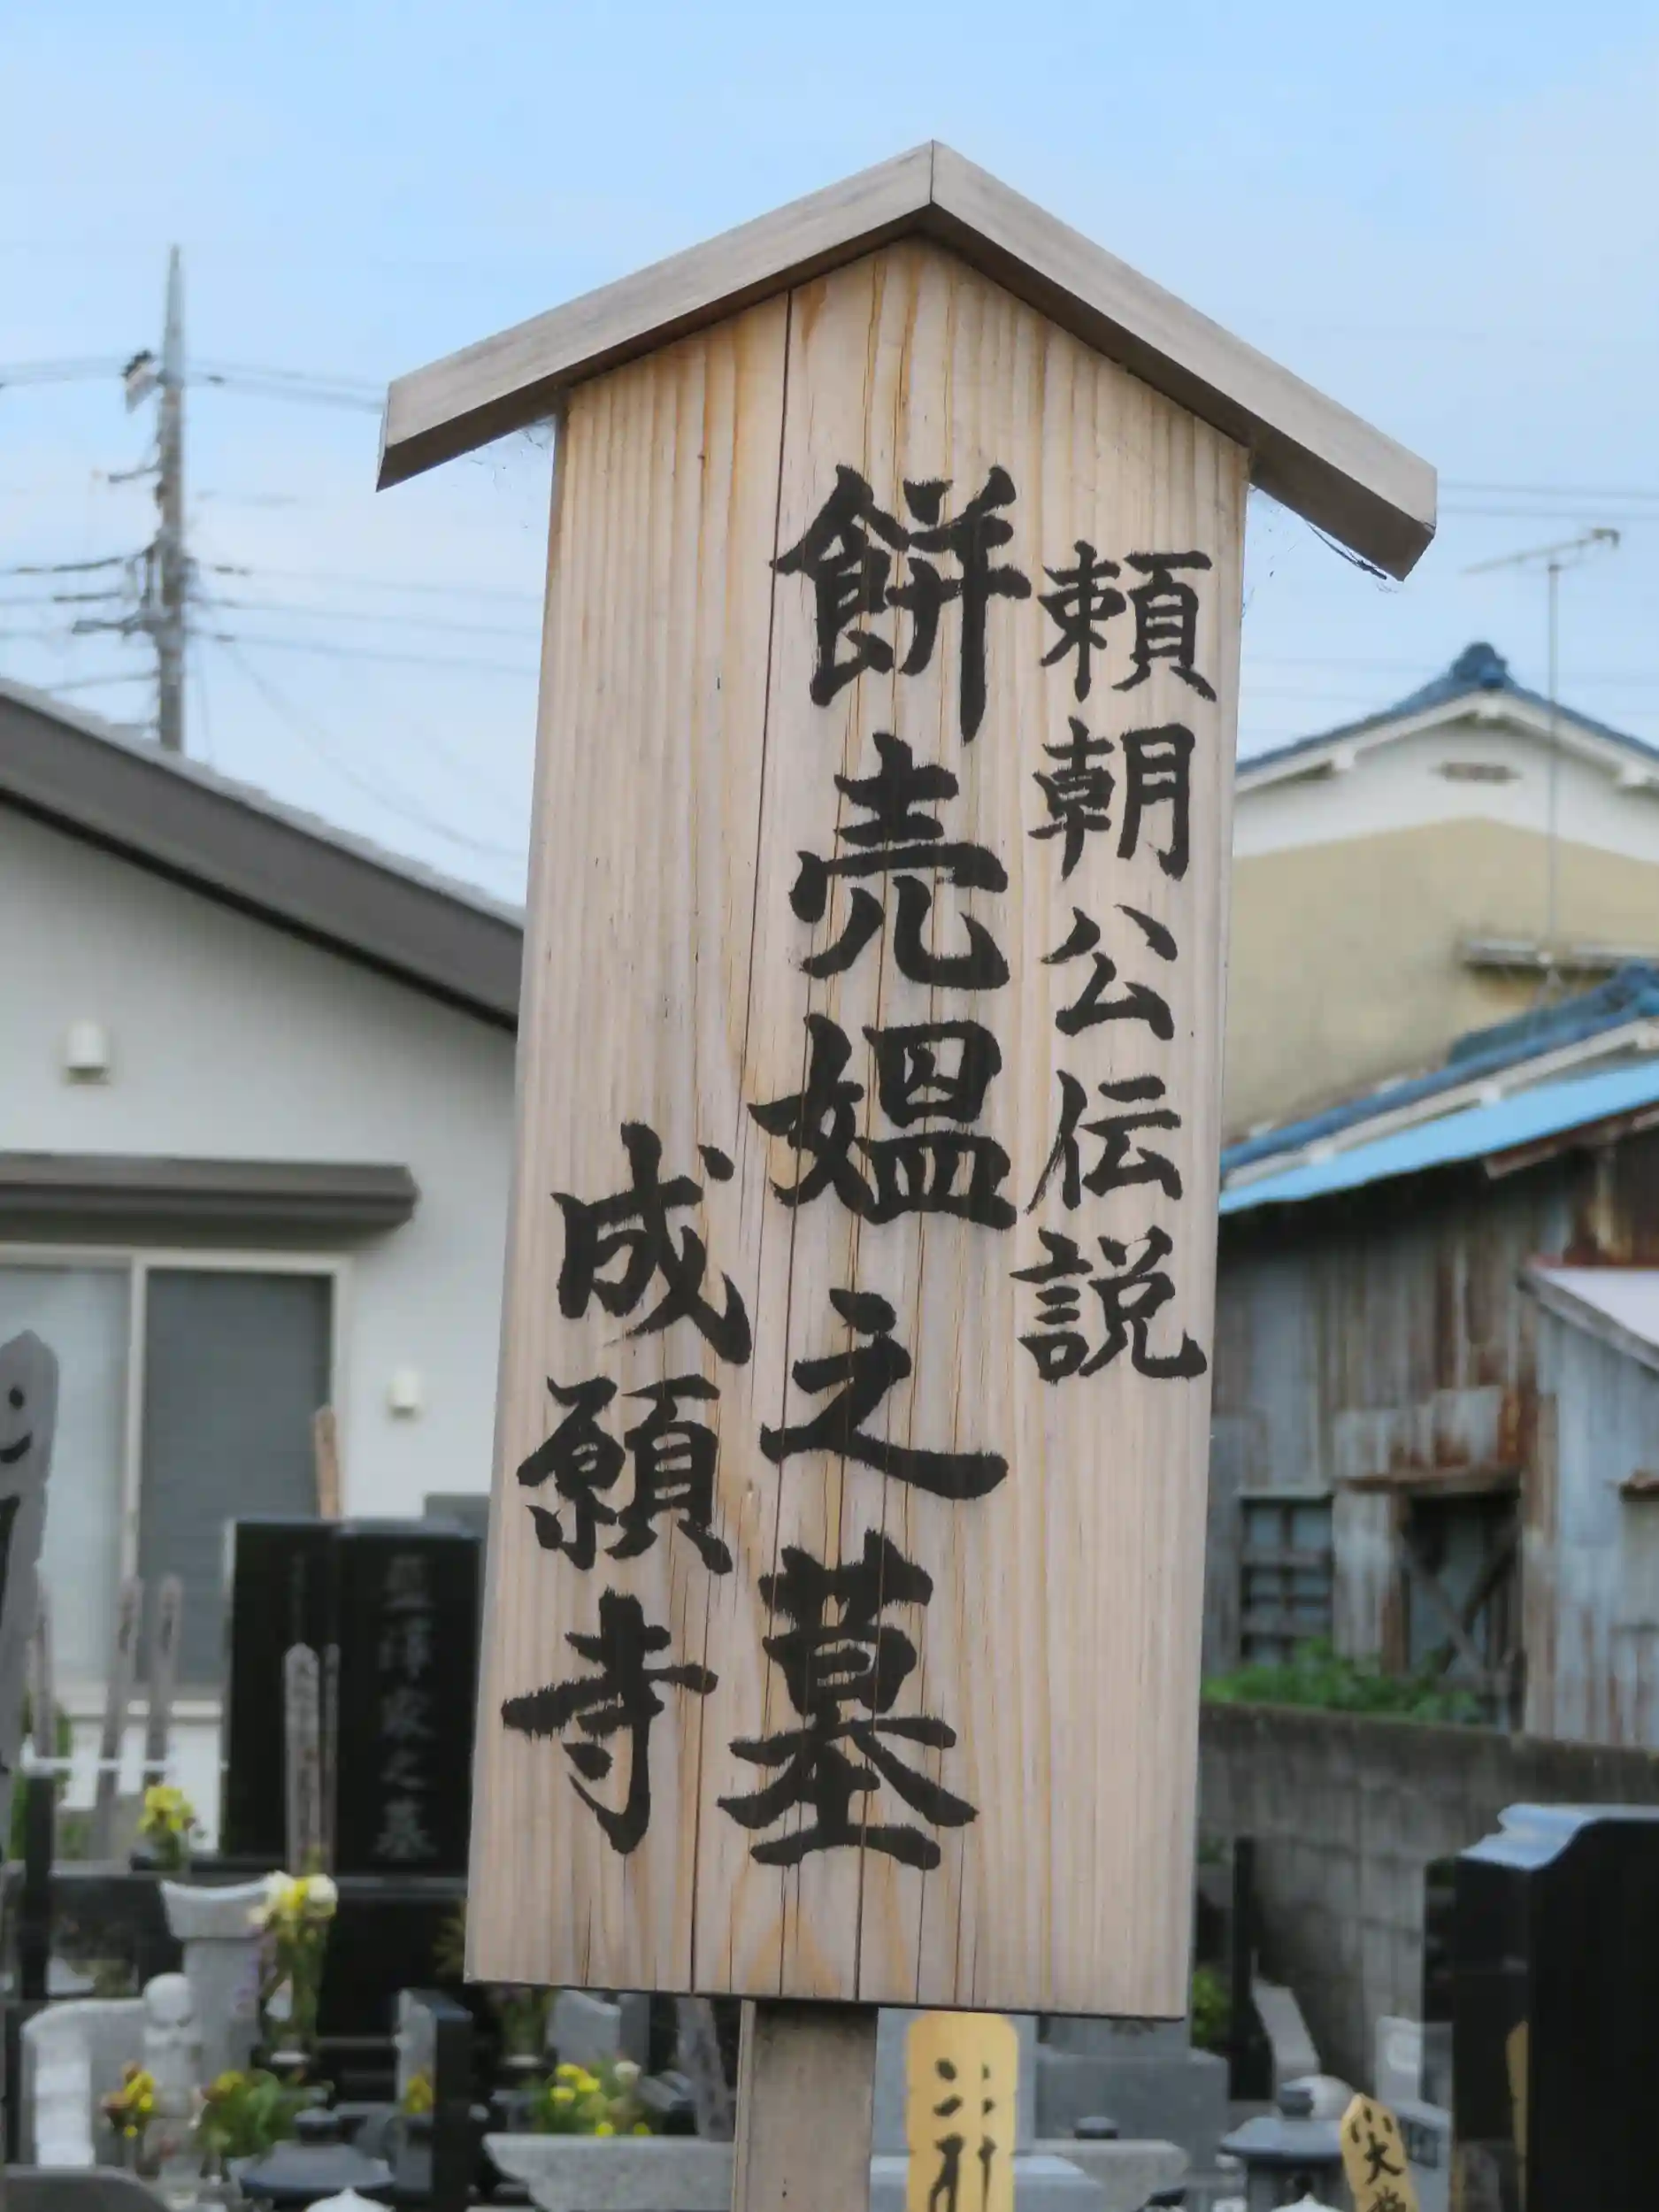 頼朝公伝説
餅売媼之墓
成願寺